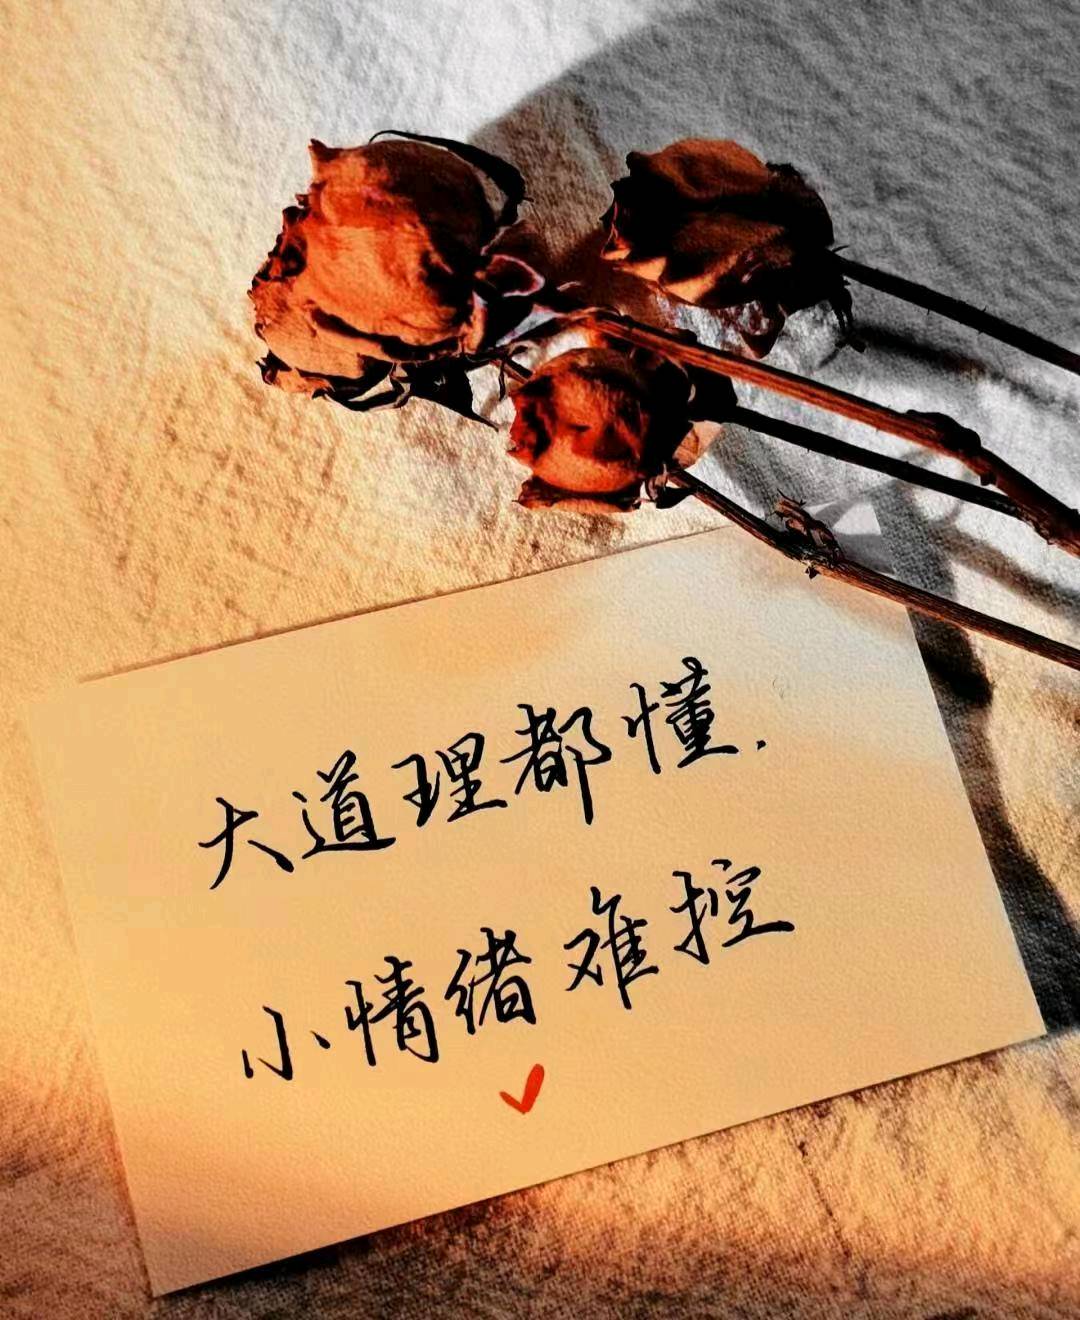 大道理都懂.
小情绪难控